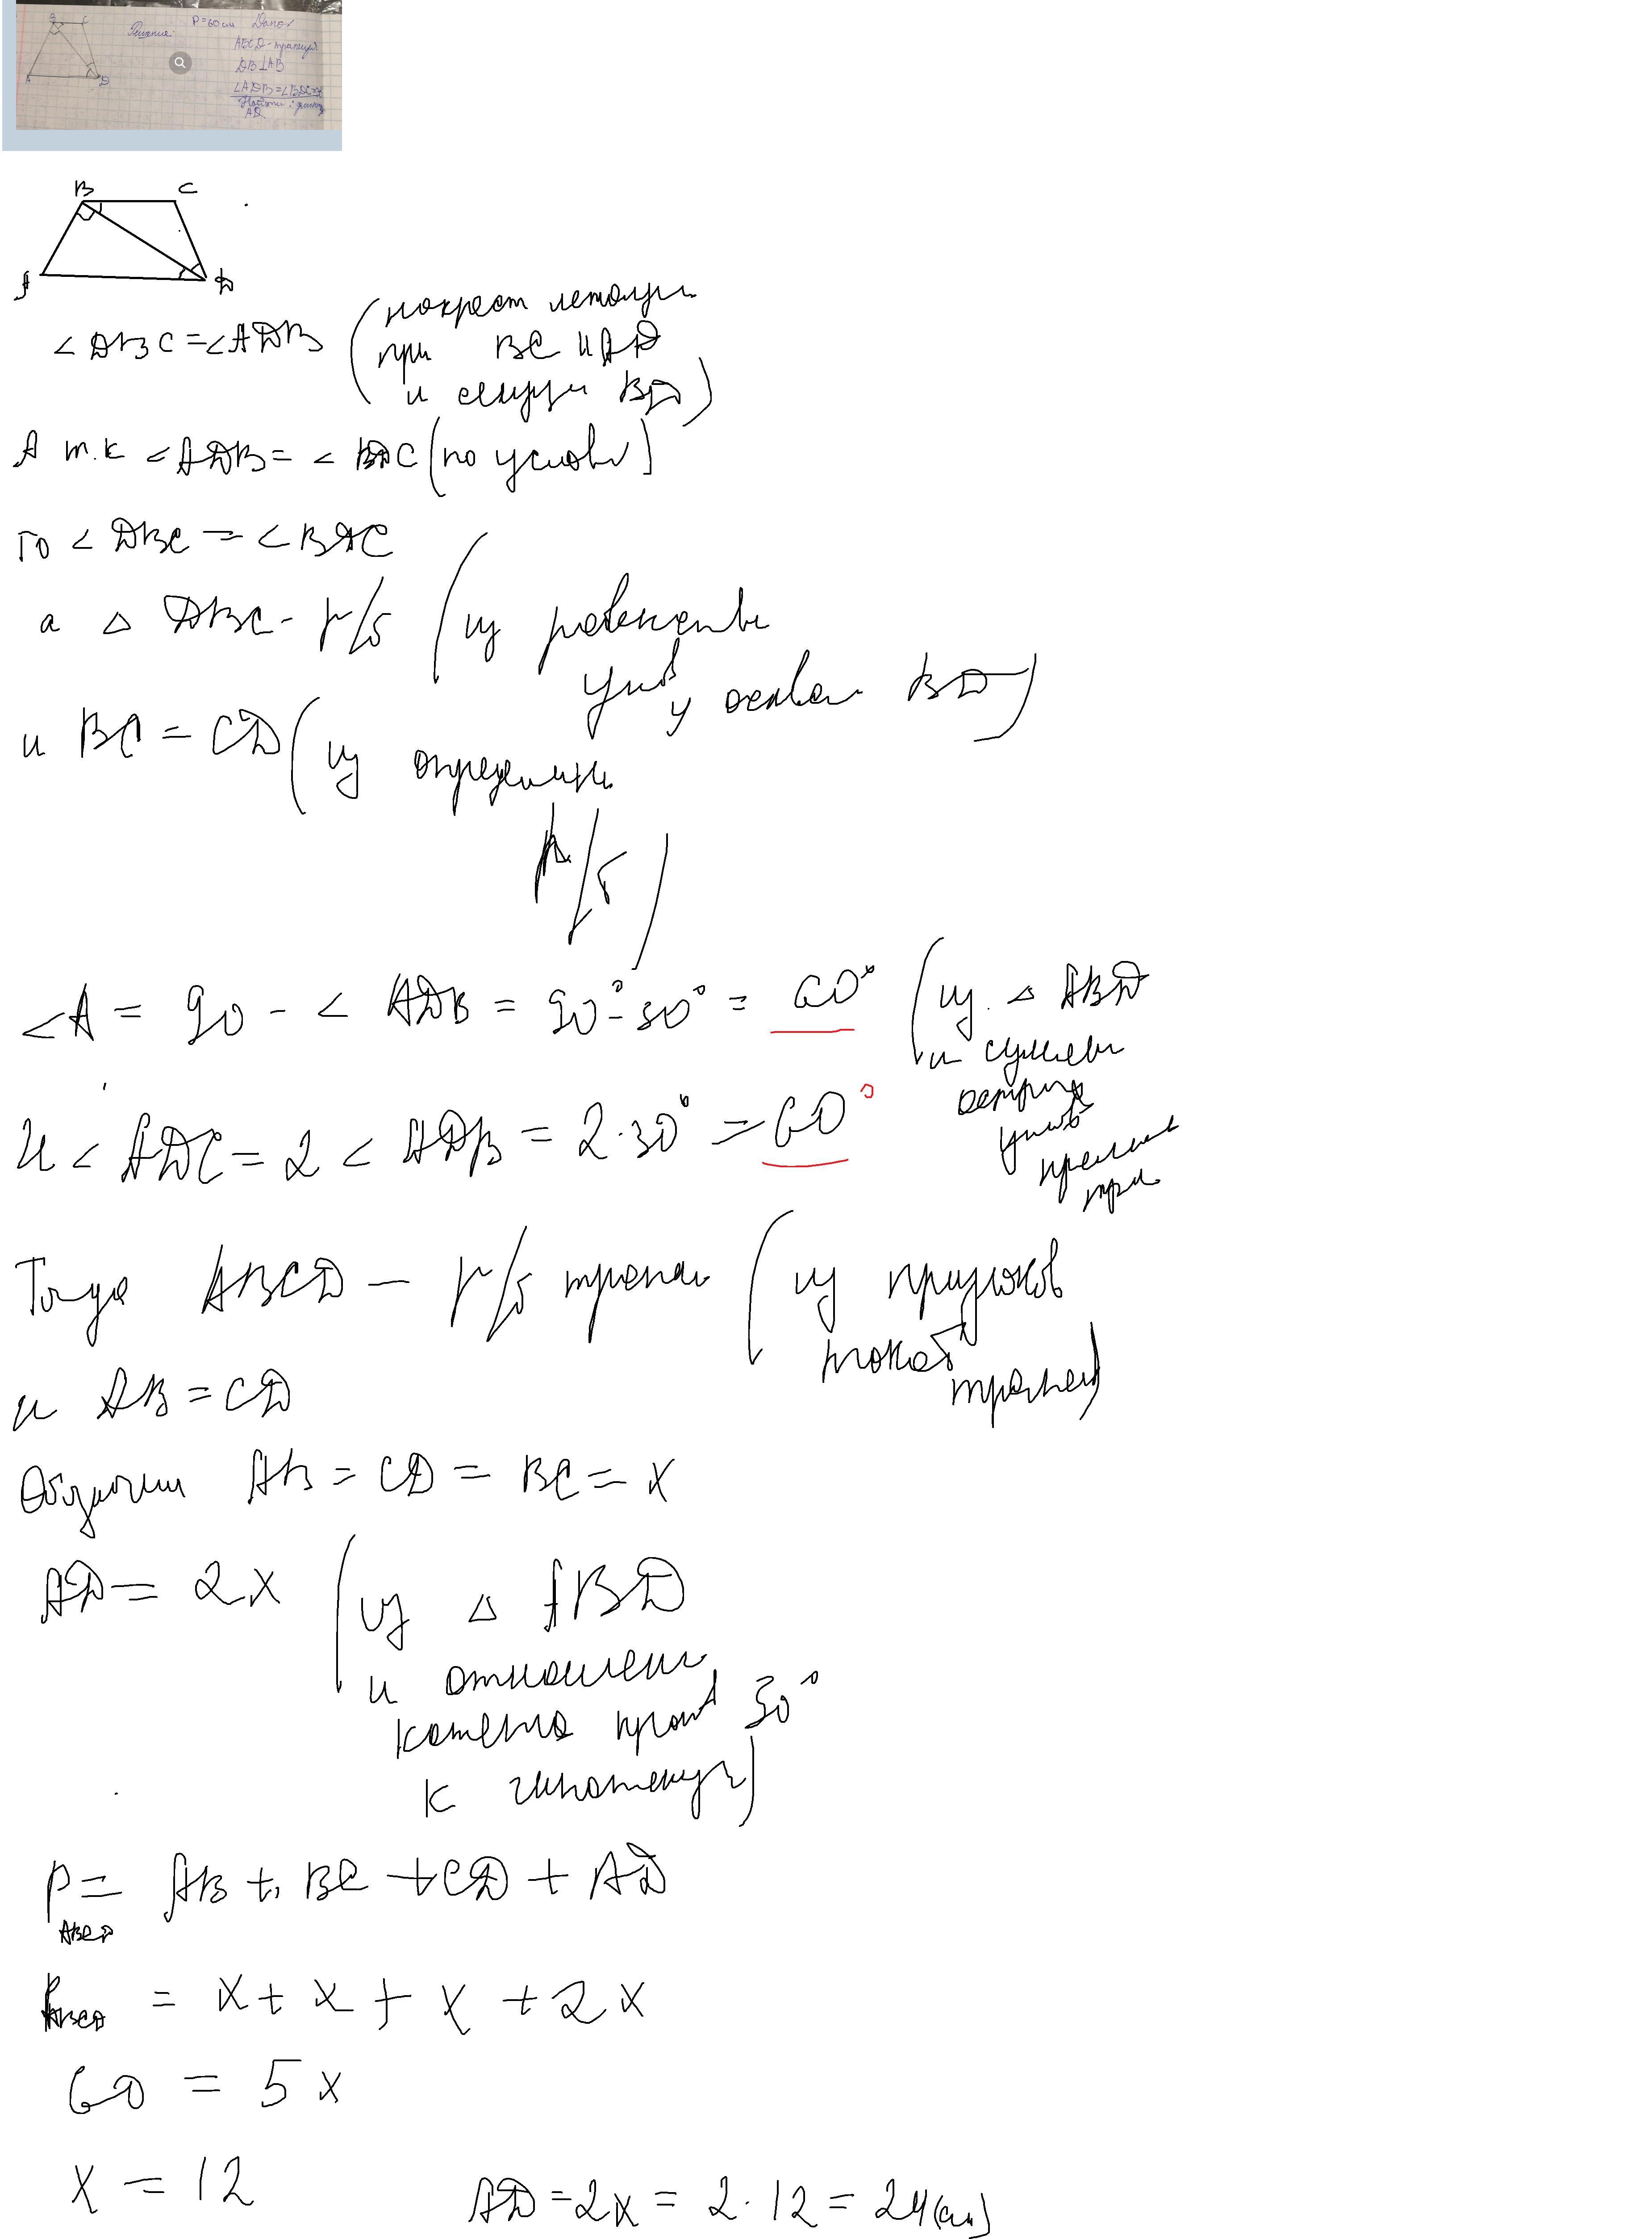 P=60см Дано:
Решение:
ABCD-трапеция
DB⊥AB
∠ADB=∠BDC=30
Найти: длину
AD
B C
A D
B C
A D
∠DBC=∠ADB (накрест лежащи
при BC и AD
и секущей BD)
А т.к ∠ADB=∠BDC (по услови)
то ∠DBC=∠BDC
а △ DBC- р/б (из равенства
углов
у основан BD)
и BC=CD (из определени
р/б)
∠A = 90 - ∠ADB = 90°-30° = 60° (из △ ABD
и суммы
острых
углов
прямоуг
тре.
И ∠ADC=2∠ADB=2·30°=60°
Тогда ABCD – р/б трапец (из признаков
такой
трапец)
и AB=CD
Обозначим AB=CD=BC=x
AD=2x (из △ ABD
и отношени
катета прот 30°
к гипотенузе)
P = AB + BC + CD + AD
ABCD
P ABCD = x + x + x + 2x
60 = 5x
x = 12
AD=2x=2·12=24(см)